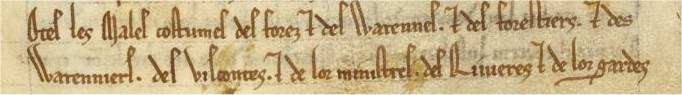 Otes les Males costumes del forez ⁊ del Warennes. ⁊ del forestiers. ⁊ des
Warenniers. del vilcontes. ⁊ de lor ministres. del Riuieres ⁊ de lor gardes